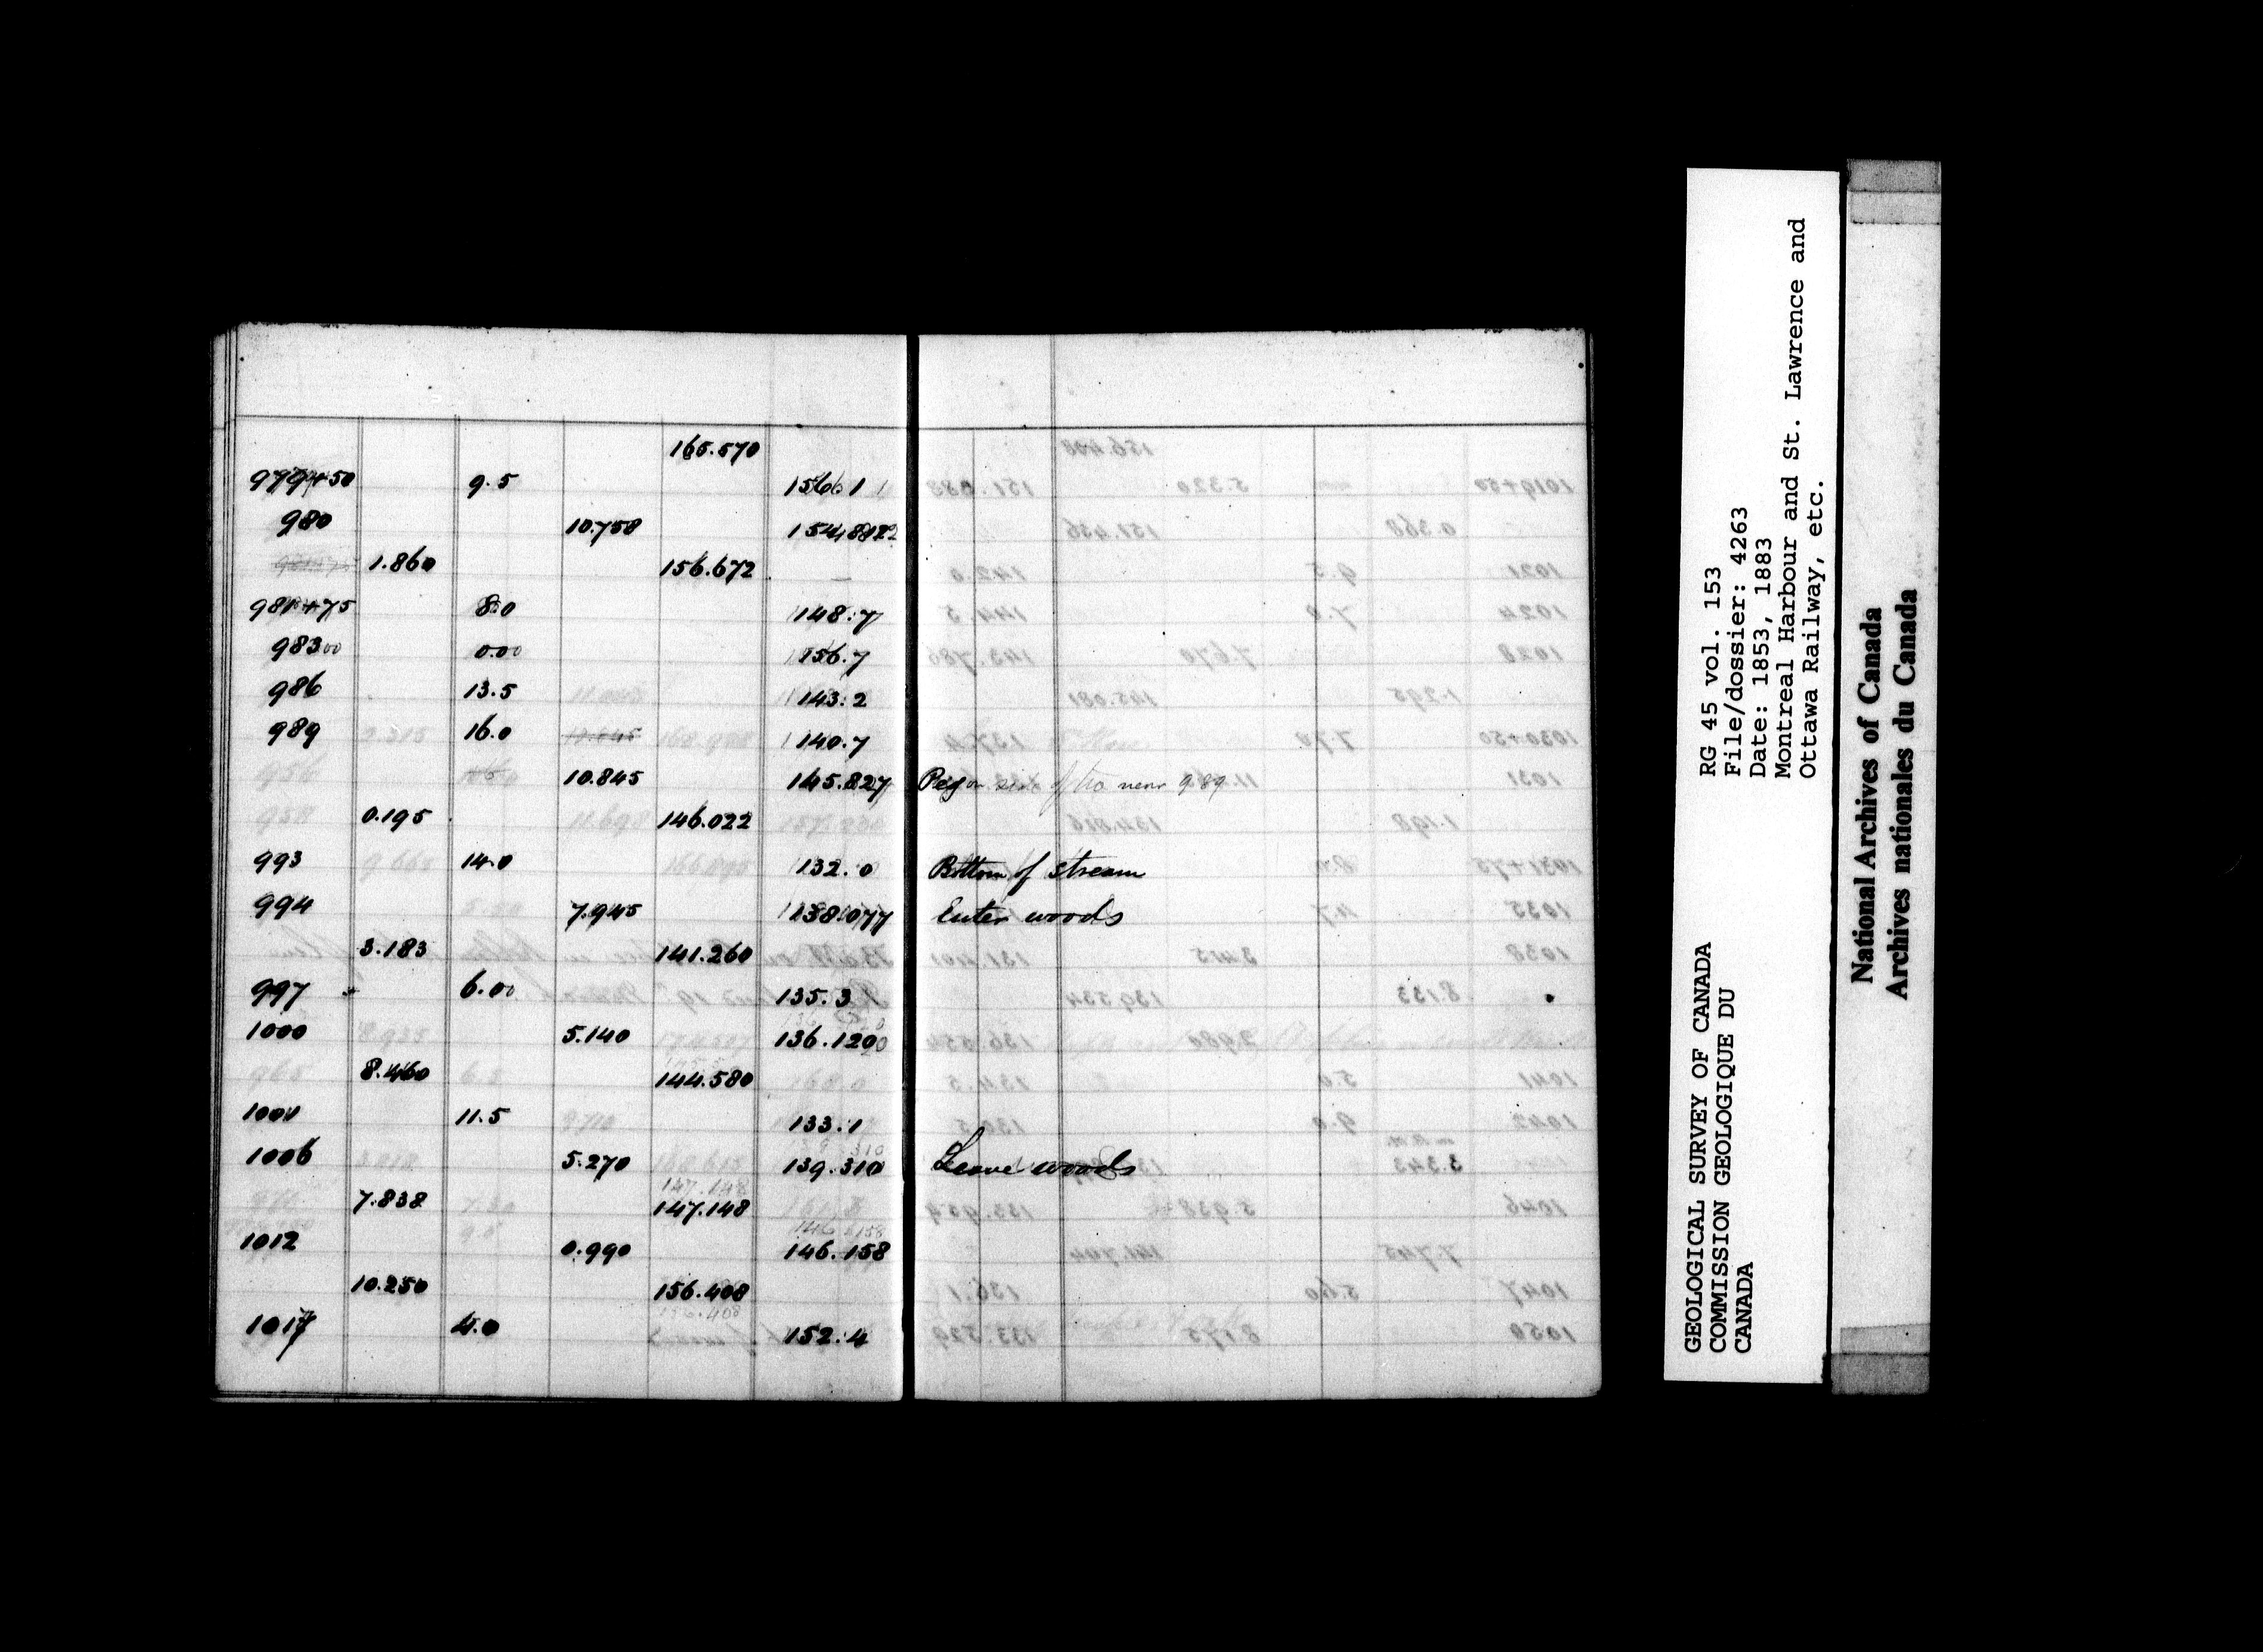 165.570
979+50 9.5 156.1
980 10.758 154.812
1.860 156.672
981+75 8.0 148.7
983.00 0.00 156.7
986 13.5 143.2
989 16.0 140.7
10.845 145.827 Peg on side of near 989
0.195 146.022
993 14.0 132.0 Bottom of stream
994 7.945 138.077 Enter woods
3.183 141.260
997 6.00 135.3
1000 5.140 136.120
8.460 144.580
11.5 133.1
1006 5.270 139.310 Leave woods
7.838 147.148
1012 0.990 146.158
10.250 156.408
1017 4.0 152.4
GEOLOGICAL SURVEY OF CANADA
COMMISSION GEOLOGIQUE DU
CANADA
RG 45 vol. 153
File/dossier: 4263
Date: 1853, 1883
Montreal Harbour and St. Lawrence and
Ottawa Railway, etc.
National Archives of Canada
Archives nationales du Canada